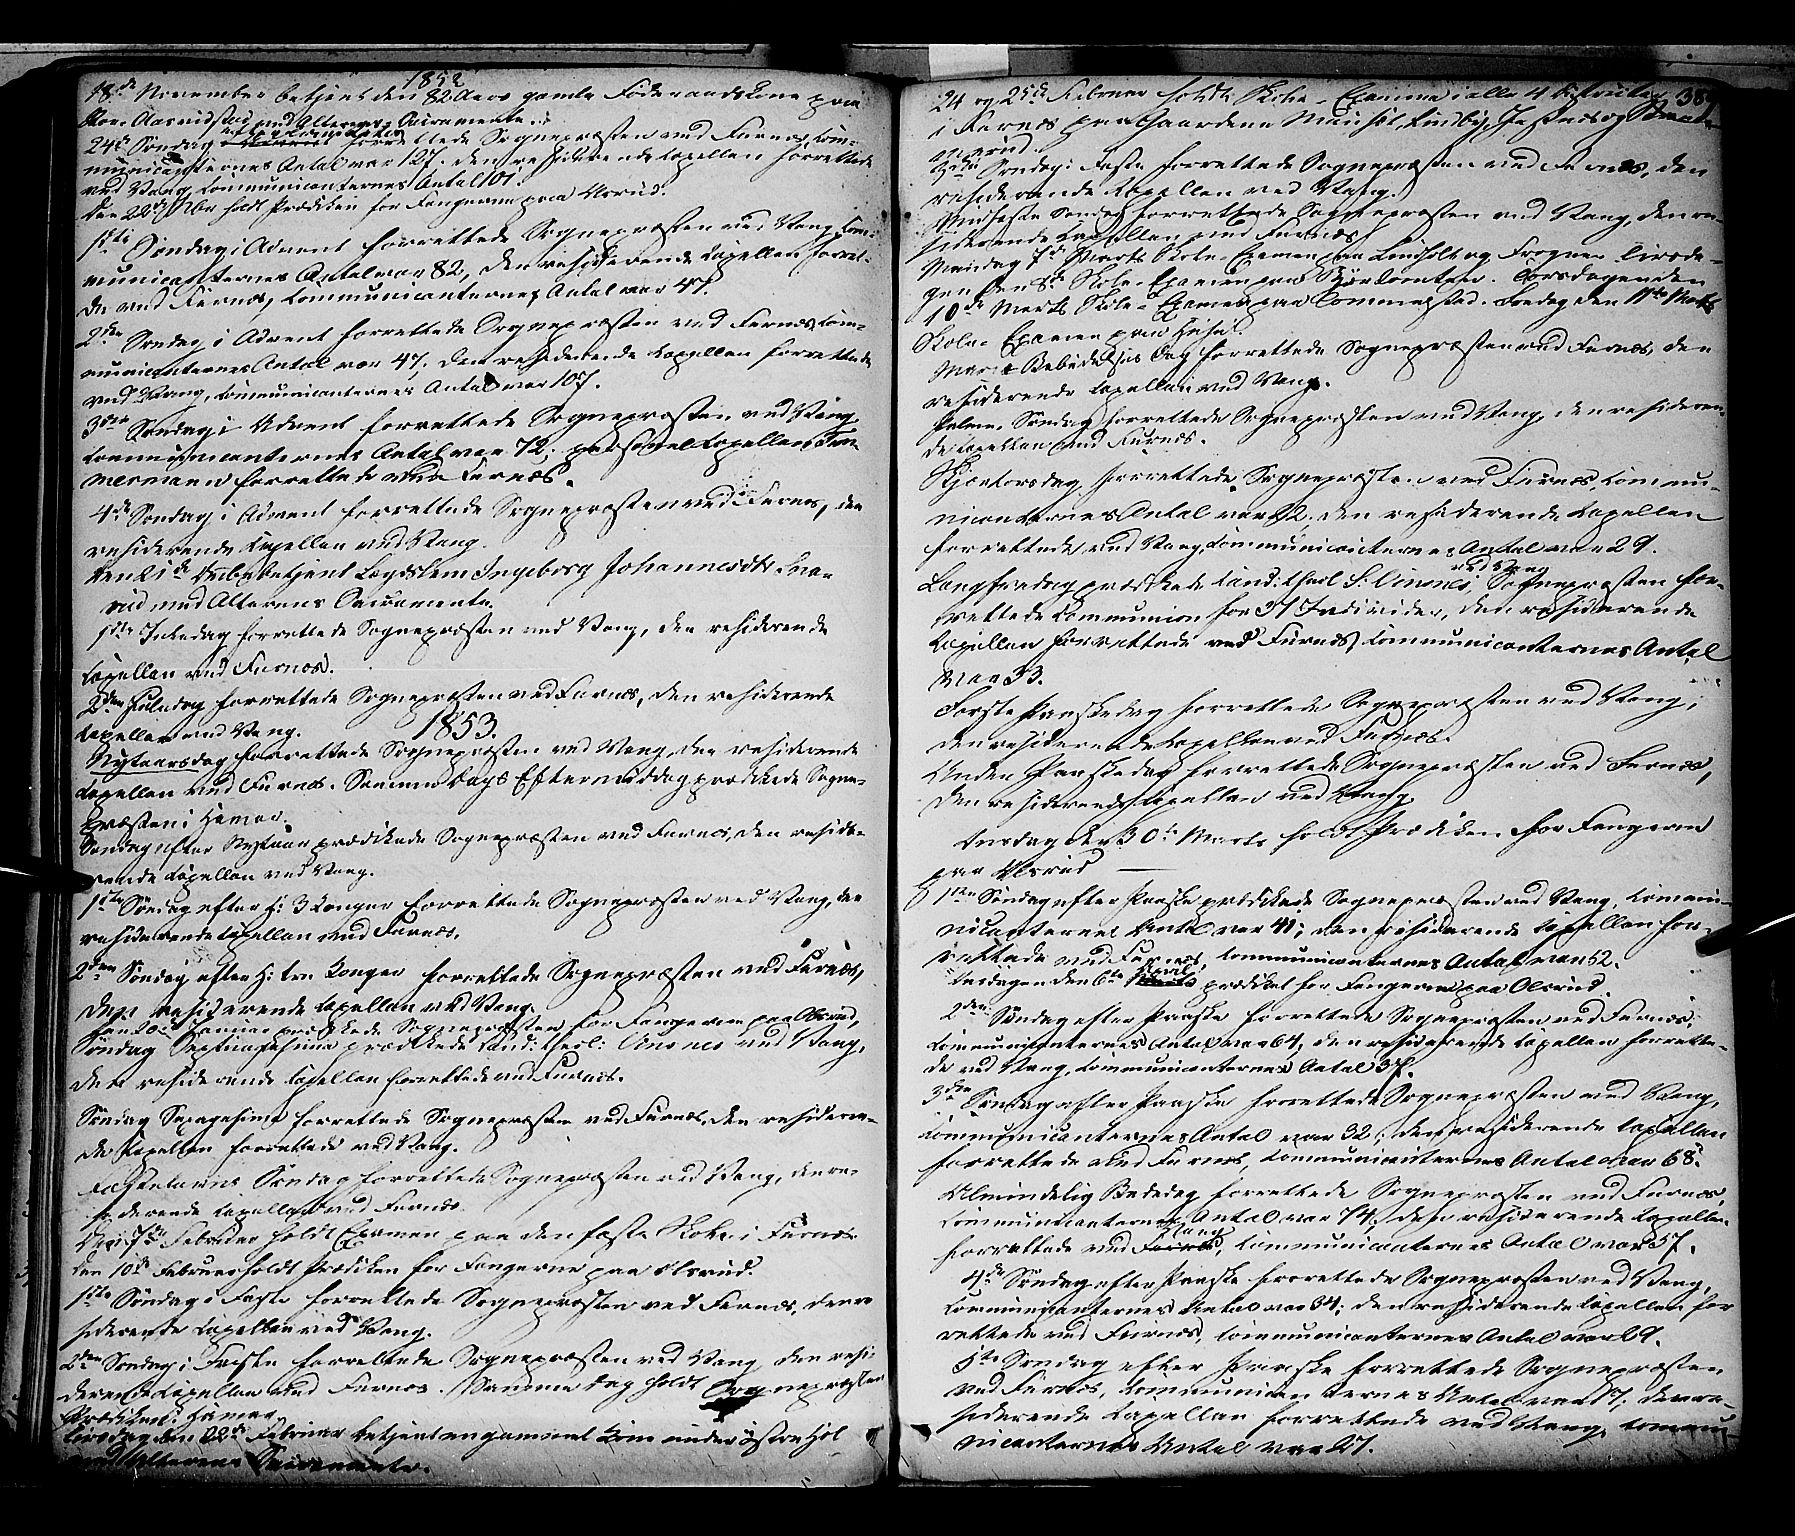 1852
18de November betjent den 82 Aars gamle Föderaadskone paa
Aasvidstad med Alterens Sacramente.
24de Söndag efter Trinitatis forrettede Sognepræsten ved Furnæs, Com-
municanternes Antal var 127. den residerende Capellan forrettede
ved Vang, Communicanternes Antal 101.
den 22de holdt Prædiken for Fangerne paa Olsrud.
1ste Söndag i Advent forrettede Sognepræsten ved Vang, Com-
municanternes Antal var 82, den residerende Capellan forret-
de ved Furnæs, Communicanternes Antal var 47.
2den Söndag i Advent forrettede Sognepræsten ved Furnæs, Com-
municanternes Antal var 47. den residerende Capellan forrettede
ved Vang, Communicanternes Antal var 107.
3die Söndag i Advent forrettede Sognepræsten ved Vang
Communicanternes Antal var 72; personel Capellan Tim-
mermann forrettede ved Furnæs.
4de Söndag i Advent forrettede Sognepræsten ved Furnæs, den
residerende Capellan ved Vang.
den 21de betjent Lægdslem Ingeborg Johannesdtr
med Alterens Sacramente.
1ste Juledag forrettede Sognepræsten ved Vang, den residerende
Capellan ved Furnæs.
2den Juledag forrettede Sognepræsten ved Furnæs, den residerende
Capellan ved Vang.
1853.
Nytaarsdag forrettede Sognepræsten ved Vang, den residerende
Capellan ved Furnæs. Samme Dags Eftermiddag prædikede Sogne-
præsten i Hamar.
Söndag efter Nytaar prædikede Sognepræsten ved Furnæs, den reside-
rende Capellan ved Vang.
1ste Söndag efter H: 3 Konger forrettede Sognepræsten ved Vang, den
residerende Capellan ved Furnæs.
2den Söndag efter H: tre Konger forrettede Sognepræsten ved Furnæs,
den residerende Capellan ved Vang.
Januar prædikede Sognepræsten for Fangerne paa Olsrud,
Söndag Septuagesima prædikede Cand: theol: Aasnes ved Vang,
den residerende Capellan forrettede ved Furnæs.
Söndag Sexagesima forrettede Sognepræsten ved Furnæs, den resideren-
de Capellan forrettede ved Vang.
Fastelavns Söndag forrettede Sognepræsten ved Vang, den re-
siderende Capellan ved Furnæs.
Den 7de Februar holdt Examen paa den faste Skole i Furnæs
den 10de Februar holdt Prædiken for Fangerne paa Olsrud.
1ste Söndag i Faste forrettede Sognepræsten ved Furnæs, den re
siderende Capellan ved Vang.
2den Söndag i Faste forrettede Sognepræsten ved Vang, den resi-
derende Capellan ved Furnæs. Samme Dag holdt Sognepræsten
Prædiken i Hamar.
Tirsdag den 22de Februar betjent en gammel Kone under östre Hol
med Alterens Sacramente.
387
24 og 25de Februar holdt Skole-Examen i alle 4 Districter
i Furnæs paa Gaardene
3die Söndag i Faste forrettede Sognepræsten ved Furnæs, den
residerende Capellan ved Vang.
Midfaste Söndag forrettede Sognepræsten ved Vang, den re-
siderende Capellan ved Furnæs.
Mandag 7de Marts Skole-Examen paa Lindholt og Frogner. Tirsda-
gen den 8de Skole-Examen paa Torsdagen den
10de Marts Skole-Examen paa Tommelstad. Fredag den 11te Marts
Skole-Examen paa
Mariæ Bebudelses Dag forrettede Sognepræsten ved Furnæs, den
residerende Capellan ved Vang.
Palme-Söndag forrettede Sognepræsten ved Vang, den residerende-
de Capellan ved Furnæs.
Skjærtorsdag forrettede Sognepræsten ved Furnæs, Commu-
nicanternes Antal var 92. den residerende Capellan
forrettede ved Vang, Communicanternes Antal var 29.
Langfredag prædikede Cand: theol: S: Aasnes ved Vang, Sognepræsten for-
rettede Communion for 31 Individer, den residerende
Capellan forrettede ved Furnæs, Communicanternes Antal
var 33.
Første Paaskedag forrettede Sognepræsten ved Vang,
den residerende Capellan ved Furnæs.
Anden Paaskedag forrettede Sognepræsten ved Furnæs,
den residerende Capellan ved Vang.
Onsdag den 30te Marts holdt Prædiken for Fangerne
paa Olsrud
1ste Söndag efter Paaske prædikede Sognepræsten ved Vang, Commu-
nicanternes Antal var 41; den residerende Capellan for-
rettede ved Furnæs, Communicanternes Antal var 52.
Onsdagen den 6te April prædiket for Fangerne paa Olsrud.
2den Söndag efter Paaske forrettede Sognepræsten ved Furnæs,
Communicanternes Antal var 64; den residerende Capellan forrette-
de ved Vang, Communicanternes Antal 37.
3die Söndag efter Paaske forrettede Sognepræsten ved Vang,
Communicanternes Antal var 32; den residerende Capellan
forrettede ved Furnæs, Communicanternes Antal var 68.
Almindelig Bededag forrettede Sognepræsten ved Furnæs,
Communicanternes Antal var 74; den residerende Capellan
forrettede ved Vang, Communicanternes Antal var 57.
4de Söndag efter Paaske forrettede Sognepræsten ved Vang,
Communicanternes Antal var 34; den residerende Capellan for
rettede ved Furnæs, Communicanternes Antal var 29.
5te Söndag efter Paaske forrettede Sognepræsten
ved Furnæs, Communicanternes Antal var 17; den re-
siderende Capellan forrettede ved Vang, Commu
nicanternes Antal var 27.